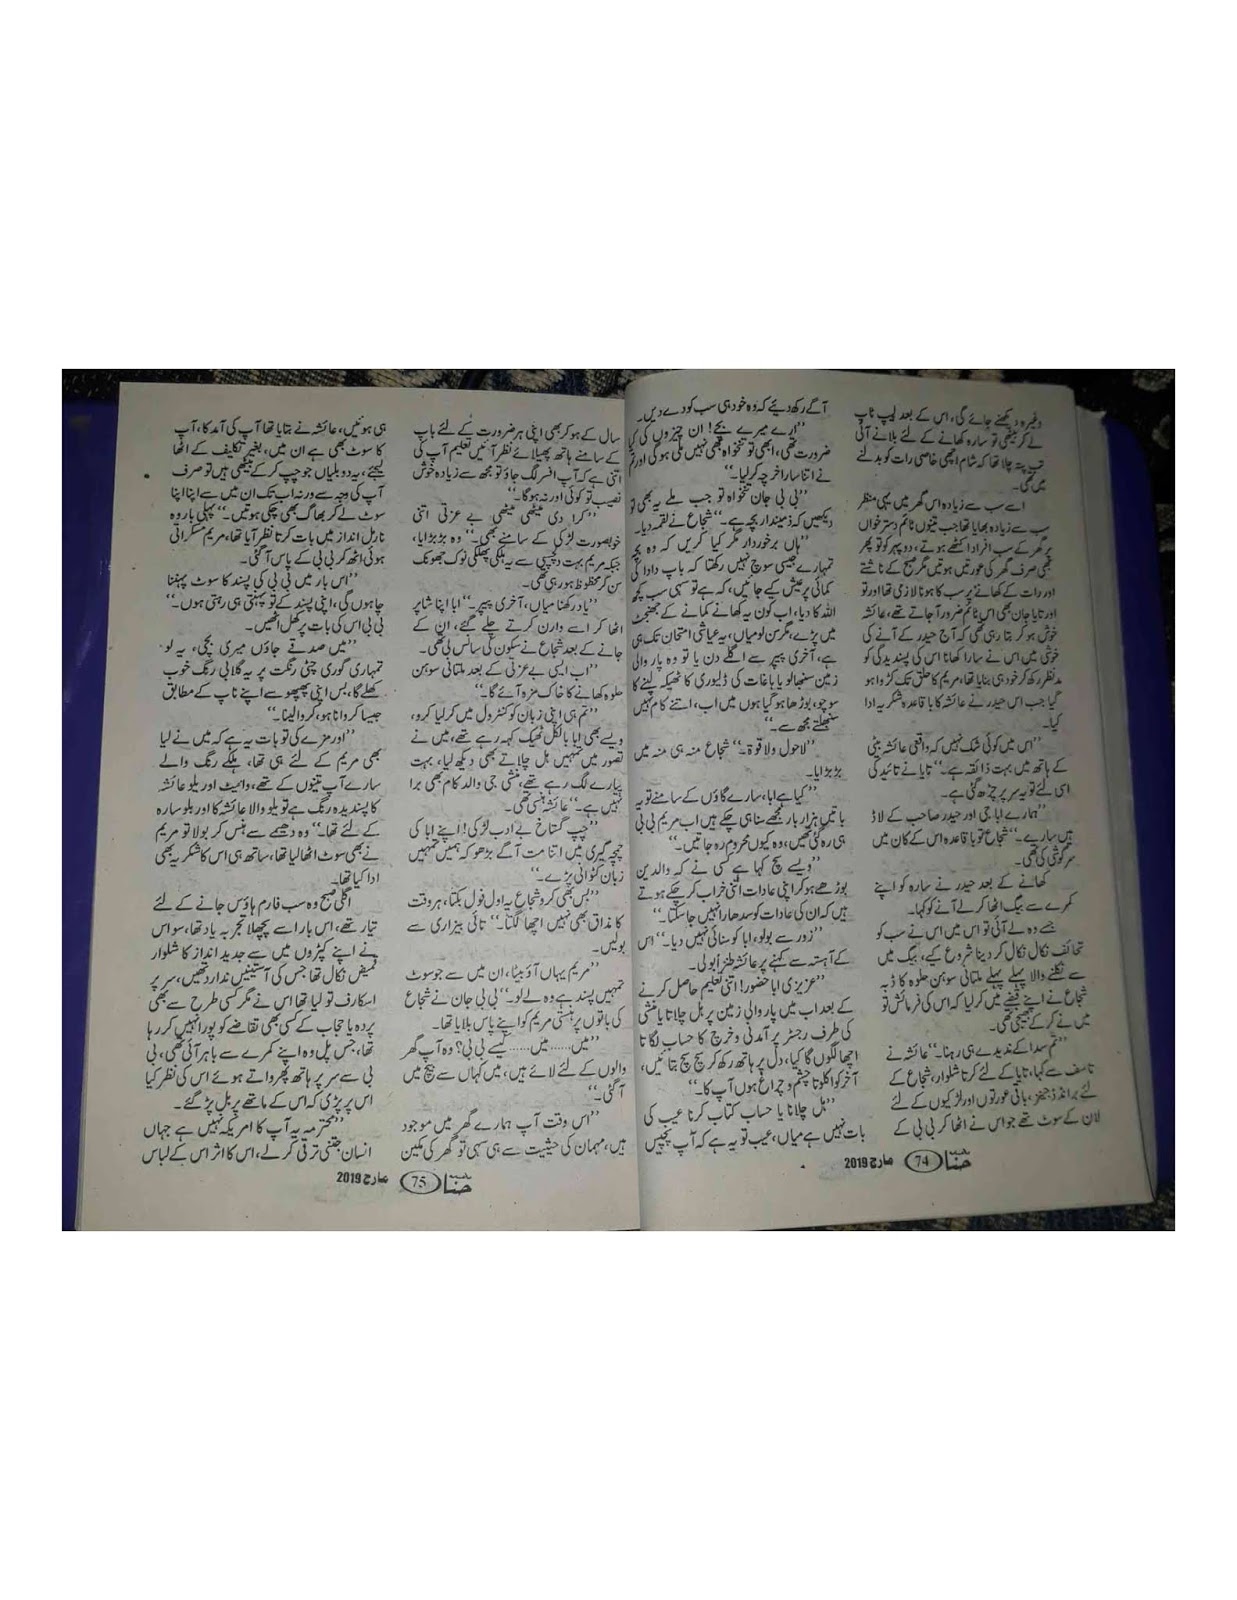 وغیرہ دیکھنے جائے گی، اس کے بعد لیپ ٹاپ
لے کر بیٹھی تو سارہ کھانے کے لئے بلانے آئی
تب پتہ چلا تھا کہ شام اچھی خاصی رات کو بدلنے
میں تھی۔
اسے سب سے زیادہ اس گھر میں یہی منظر
سب سے زیادہ بھایا تھا جب تینوں ٹائم دسترخواں
پر گھر کے سب افراد اکٹھے ہوتے، دوپہر کو تو پھر
بھی صرف گھر کی عورتیں ہوتیں مگر صبح کے ناشتے
اور رات کے کھانے پر سب کا ہونا لازمی تھا اور تو
اور تایا جان بھی اس ٹائم ضرور آ جاتے تھے، عائشہ
خوش ہو کر بتا رہی تھی کہ آج حیدر کے آنے کی
خوشی میں اس نے سارا کھانا اس کی پسندیدگی کو
مدنظر رکھ کر خود ہی بنایا تھا، مریم کا حلق تک کڑوا ہو
گیا جب اس حیدر نے عائشہ کا باقاعدہ شکریہ ادا
کیا۔
’’اس میں کوئی شک نہیں کہ واقعی عائشہ بیٹی
کے ہاتھ میں بہت ذائقہ ہے۔‘‘ تایا نے تائید کی
اسی لئے تو یہ سر پر چڑھ گئی ہے۔
’’ہمارے ابا جی اور حیدر صاحب کے لاڈ
ہیں سارے۔‘‘ شجاع تو باقاعدہ اس کے کان میں
سرگوشی کی تھی۔
کھانے کے بعد حیدر نے سارہ کو اپنے
کمرے سے بیگ اٹھا کر لے آنے کو کہا۔
جسے وہ لے آئی تو اس میں اس نے سب کو
تحائف نکال نکال کر دینا شروع کیے، بیگ میں
سے نکلنے والا پہلے پہلے ملتانی سوہن حلوہ کا ڈبہ
شجاع نے اپنے قبضے میں کر لیا کہ اس کی فرمائش تو
میں نے کر کے بھیجی تھی۔
’’تم سدا کے ندیدے ہی رہنا۔‘‘ عائشہ نے
تاسف سے کہا، تایا کے لئے کرتا شلوار، شجاع کے
لئے برانڈڈ جینز، باقی عورتوں اور لڑکیوں کے لئے
لان کے سوٹ تھے جو اس نے اٹھا کر بی بی کے
آگے رکھ دیئے کہ وہ خود ہی سب کو دے دیں۔
’’ارے میرے بچے! ان چیزوں کی کیا
ضرورت تھی، ابھی تو تنخواہ بھی نہیں ملی ہو گی اور تم
نے اتنا سارا خرچہ کر لیا۔‘‘
’’بی بی جان تنخواہ تو جب ملے یہ بھی تو
دیکھیں کہ زمیندار بچہ ہے۔‘‘ شجاع نے لقمہ دیا۔
’’ہاں برخوردار مگر کیا کریں کہ وہ بچہ
تمہارے جیسی سوچ نہیں رکھتا کہ باپ دادا کی
کمائی پر عیش کیے جائیں، کہ ہے تو سہی سب کچھ
اللہ کا دیا، اب کون یہ کھانے کمانے کے جھنجٹ
میں پڑے، مگر سن لو میاں، یہ عیاشی امتحان تک ہی
ہے، آخری پیپر سے اگلے دن یا تو وہ پار والی
زمین سنبھالو یا باغات کی ڈلیوری کا ٹھیکہ لینے کا
سوچو، بوڑھا ہو گیا ہوں میں اب، اتنے کام نہیں
سنبھلتے مجھ سے۔‘‘
’’لاحول ولاقوۃ۔‘‘ شجاع منہ ہی منہ میں
بڑبڑایا۔
’’کیا ہے ابا، سارے گاؤں کے سامنے تو یہ
باتیں ہزار بار مجھے سنا ہی چکے ہیں اب مریم بی بی
ہی رہ گئی تھیں، وہ کیوں محروم رہ جاتیں۔‘‘
’’ویسے سچ کہا ہے کسی نے کہ والدین
بوڑھے ہو کر اپنی عادات اتنی خراب کر چکے ہوتے
ہیں کہ ان کی عادات کو سدھارا نہیں جا سکتا۔‘‘
’’زور سے بولو، ابا کو سنائی نہیں دیا۔‘‘ اس
کے آہستہ سے کہنے پر عائشہ طنزاً بولی۔
’’عزیزی ابا حضور! اتنی تعلیم حاصل کرنے
کے بعد اب میں پار والی زمین پر ہل چلاتا یا منشی
کی طرف رجسٹر پر آمدنی و خرچ کا حساب لگاتا
اچھا لگوں گا کیا، دل پر ہاتھ رکھ کر سچ سچ بتائیں،
آخر کو اکلوتا چشم و چراغ ہوں آپ کا۔‘‘
’’ہل چلانا یا حساب کتاب کرنا عیب کی
بات نہیں ہے میاں، عیب تو یہ ہے کہ آپ پچیس
حنا 74 مارچ 2019
سال کے ہو کر بھی اپنی ہر ضرورت کے لئے باپ
کے سامنے ہاتھ پھیلائے نظر آئیں تعلیم آپ کی
اتنی ہے کہ آپ افسر لگ جاؤ تو مجھ سے زیادہ خوش
نصیب تو کوئی اور نہ ہوگا۔‘‘
’’کرا دی میٹھی میٹھی بے عزتی اتنی
خوبصورت لڑکی کے سامنے بھی۔‘‘ وہ بڑبڑایا،
جبکہ مریم بہت دلچسپی سے یہ ہلکی پھلکی نوک جھونک
سن کر محظوظ ہو رہی تھی۔
’’یاد رکھنا میاں، آخری پیپر۔‘‘ ابا اپنا شاپر
اٹھا کر اسے وارن کرتے چلے گئے، ان کے
جانے کے بعد شجاع نے سکون کی سانس لی تھی۔
’’اب ایسی بے عزتی کے بعد ملتانی سوہن
حلوہ کھانے کا خاک مزہ آئے گا۔‘‘
’’تم ہی اپنی زبان کو کنٹرول میں کر لیا کرو،
ویسے بھی ابا بالکل ٹھیک کہہ رہے تھے، میں نے
تصور میں تمہیں ہل چلاتے بھی دیکھ لیا، بہت
پیارے لگ رہے تھے، منشی جی والد کام بھی برا
نہیں ہے۔‘‘ عائشہ ہنسی تھی۔
’’چپ گستاخ بے ادب لڑکی! اپنے ابا کی
چمچہ گیری میں اتنا مت آگے بڑھو کہ ہمیں تمہیں
زبان کٹوانی پڑے۔‘‘
’’بس بھی کرو شجاع یہ اول فول بکنا، ہر وقت
کا مذاق بھی نہیں اچھا لگتا۔‘‘ تائی بیزاری سے
بولیں۔
’’مریم یہاں آؤ بیٹا، ان میں سے جو سوٹ
تمہیں پسند ہے وہ لے لو۔‘‘ بی بی جان نے شجاع
کی باتوں پر ہنستی مریم کو اپنے پاس بلایا تھا۔
’’میں...... میں...... کیسے بی بی؟ وہ آپ گھر
والوں کے لئے لائے ہیں، میں کہاں سے بیچ میں
آ گئی۔‘‘
’’اس وقت آپ ہمارے گھر میں موجود
ہیں، مہمان کی حیثیت سے ہی سہی تو گھر کی مکین
ہی ہوئیں، عائشہ نے بتایا تھا آپ کی آمد کا، آپ
کا سوٹ بھی ہے ان میں، بغیر تکلیف کے اٹھا
لیجئے، یہ دو بلیاں جو چپ کر کے بیٹھی ہیں تو صرف
آپ کی وجہ سے ورنہ اب تک ان میں سے اپنا اپنا
سوٹ لے کر بھاگ بھی چکی ہوتیں۔‘‘ پہلی بار وہ
نارمل انداز میں بات کرتا نظر آیا تھا، مریم مسکراتی
ہوئی اٹھ کر بی بی کے پاس آ گئی۔
’’اس بار میں بی بی کی پسند کا سوٹ پہننا
چاہوں گی، اپنی پسند کے تو پہنتی ہی رہتی ہوں۔‘‘
بی بی اس کی بات پر کھل اٹھیں۔
’’میں صدقے جاؤں میری بچی، یہ لو
تمہاری گوری چٹی رنگت پر یہ گلابی رنگ خوب
کھلے گا، بس اپنی پھپھو سے اپنے ناپ کے مطابق
جیسا کروانا ہو، کروا لینا۔‘‘
’’اور مزے کی تو بات یہ ہے کہ میں نے لیا
بھی مریم کے لئے ہی تھا، ہلکے رنگ والے
سارے آپ تینوں کے تھے، وائیٹ اور یلو عائشہ
کا پسندیدہ رنگ ہے تو یلو والا عائشہ کا اور بلو سارہ
کے لئے تھا۔‘‘ وہ دھیمے سے ہنس کر بولا تو مریم
نے بھی سوٹ اٹھا لیا تھا، ساتھ ہی اس کا شکریہ بھی
ادا کیا تھا۔
اگلی صبح وہ سب فارم ہاؤس جانے کے لئے
تیار تھے، اس بار اسے پچھلا تجربہ یاد تھا، سو اس
نے اپنے کپڑوں میں سے جدید انداز کا شلوار
قمیض نکال تھا جس کی آستینیں ندارد تھیں، سر پر
اسکارف تو لیا تھا اس نے مگر کسی طرح سے بھی
پردہ یا حجاب کے کسی بھی تقاضے کو پورا نہیں کر رہا
تھا، جس پل وہ اپنے کمرے سے باہر آئی تھی، بی
بی سے سر پر ہاتھ پھرواتے ہوئے اس کی نظر کیا
اس پر پڑی کہ اس کے ماتھے پر بل پڑ گئے۔
’’محترمہ یہ آپ کا امریکہ نہیں ہے جہاں
انسان جتنی ترقی کر لے، اس کا اثر اس کے لباس
حنا 75 مارچ 2019